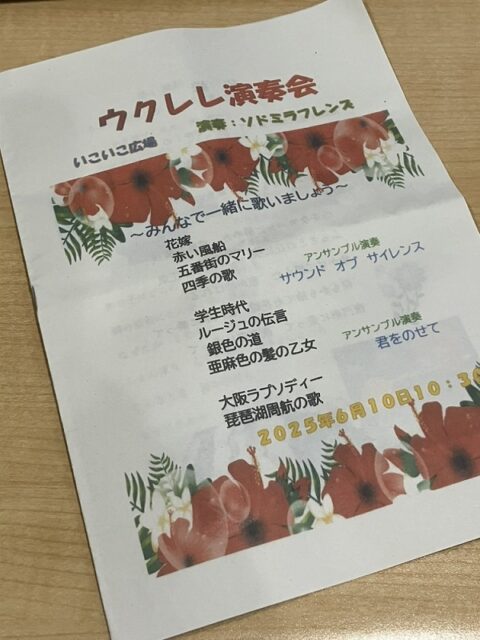 ウクレレ演奏会
演奏：ソドミラフレンズ
いこいこ広場
～みんなで一緒に歌いましょう～
花嫁
赤い風船
五番街のマリー
四季の歌
アンサンブル演奏
サウンド オブ サイレンス
学生時代
ルージュの伝言
銀色の道
亜麻色の髪の乙女
アンサンブル演奏
君をのせて
大阪ラプソディー
琵琶湖周航の歌
2025年6月10日10：30